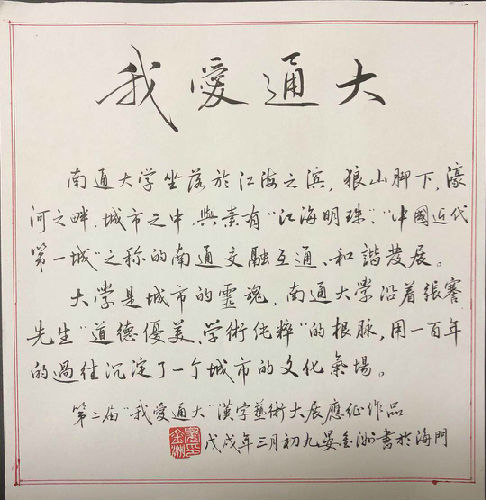 我愛通大
南通大学坐落於江海之滨，狼山脚下，濠
河之畔，城市之中，與素有“江海明珠”、“中國近代
第一城”之称的南通交融互通、和諧發展。
大学是城市的靈魂，南通大學沿着張謇
先生“道德優美、学術纯粹”的根脉，用一百年
的過往沉淀了一个城市的文化氣場。
第二届“我爱通大”漢字藝術大展應征作品
戊戌年三月初九晏金洲書於海門